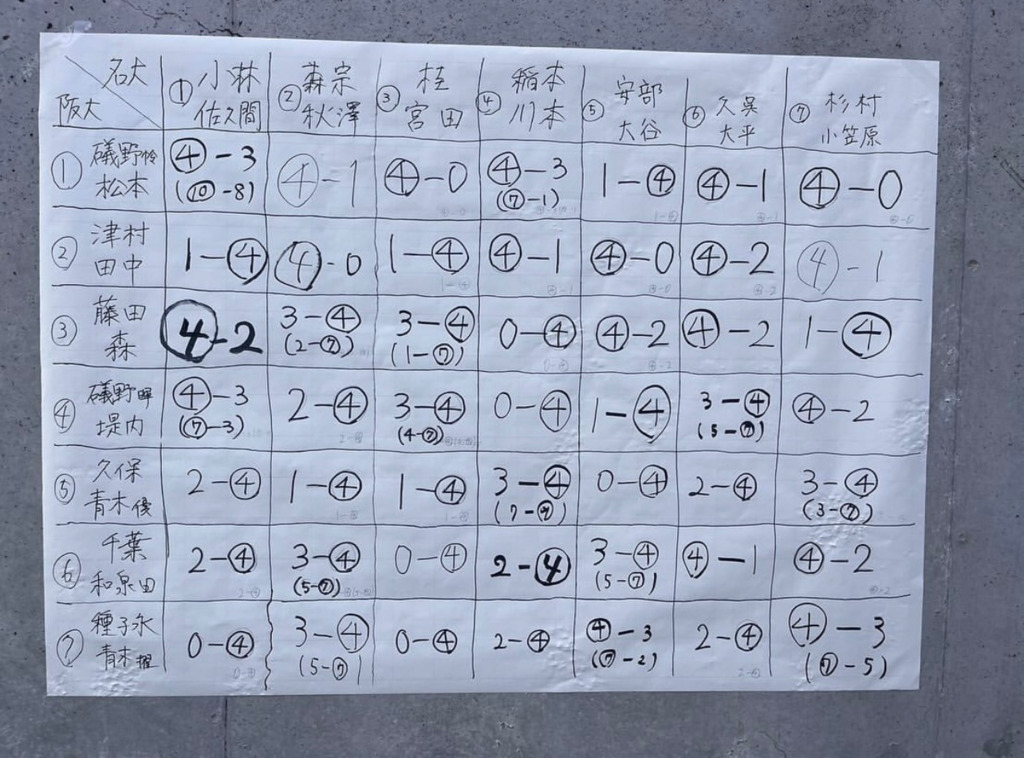 名大
阪大
① 小林
佐久間
② 森宗
秋澤
③ 桂
宮田
④ 稲本
川本
⑤ 安部
大谷
⑥ 久呉
大平
⑦ 杉村
小笠原
① 礒野怜
松本
④-3
(⑩-8)
④-1
④-0
④-3
(⑦-1)
1-④
④-1
④-0
② 津村
田中
1-④
④-0
1-④
④-1
④-0
④-2
④-1
③ 藤田
森
④-2
3-④
(2-⑦)
3-④
(1-⑦)
0-④
④-2
④-2
1-④
④ 礒野
堤内
④-3
(⑦-3)
2-④
3-④
(4-⑦)
0-④
1-④
3-④
(5-⑦)
④-2
⑤ 久保
青木優
2-④
1-④
1-④
3-④
(7-⑨)
0-④
2-④
3-④
(3-⑦)
⑥ 千葉
和泉田
2-④
3-④
(5-⑦)
0-④
2-④
3-④
(5-⑦)
④-1
④-2
⑦ 種子永
青木
0-④
3-④
(5-⑦)
0-④
2-④
④-3
(⑦-2)
2-④
④-3
(⑦-5)